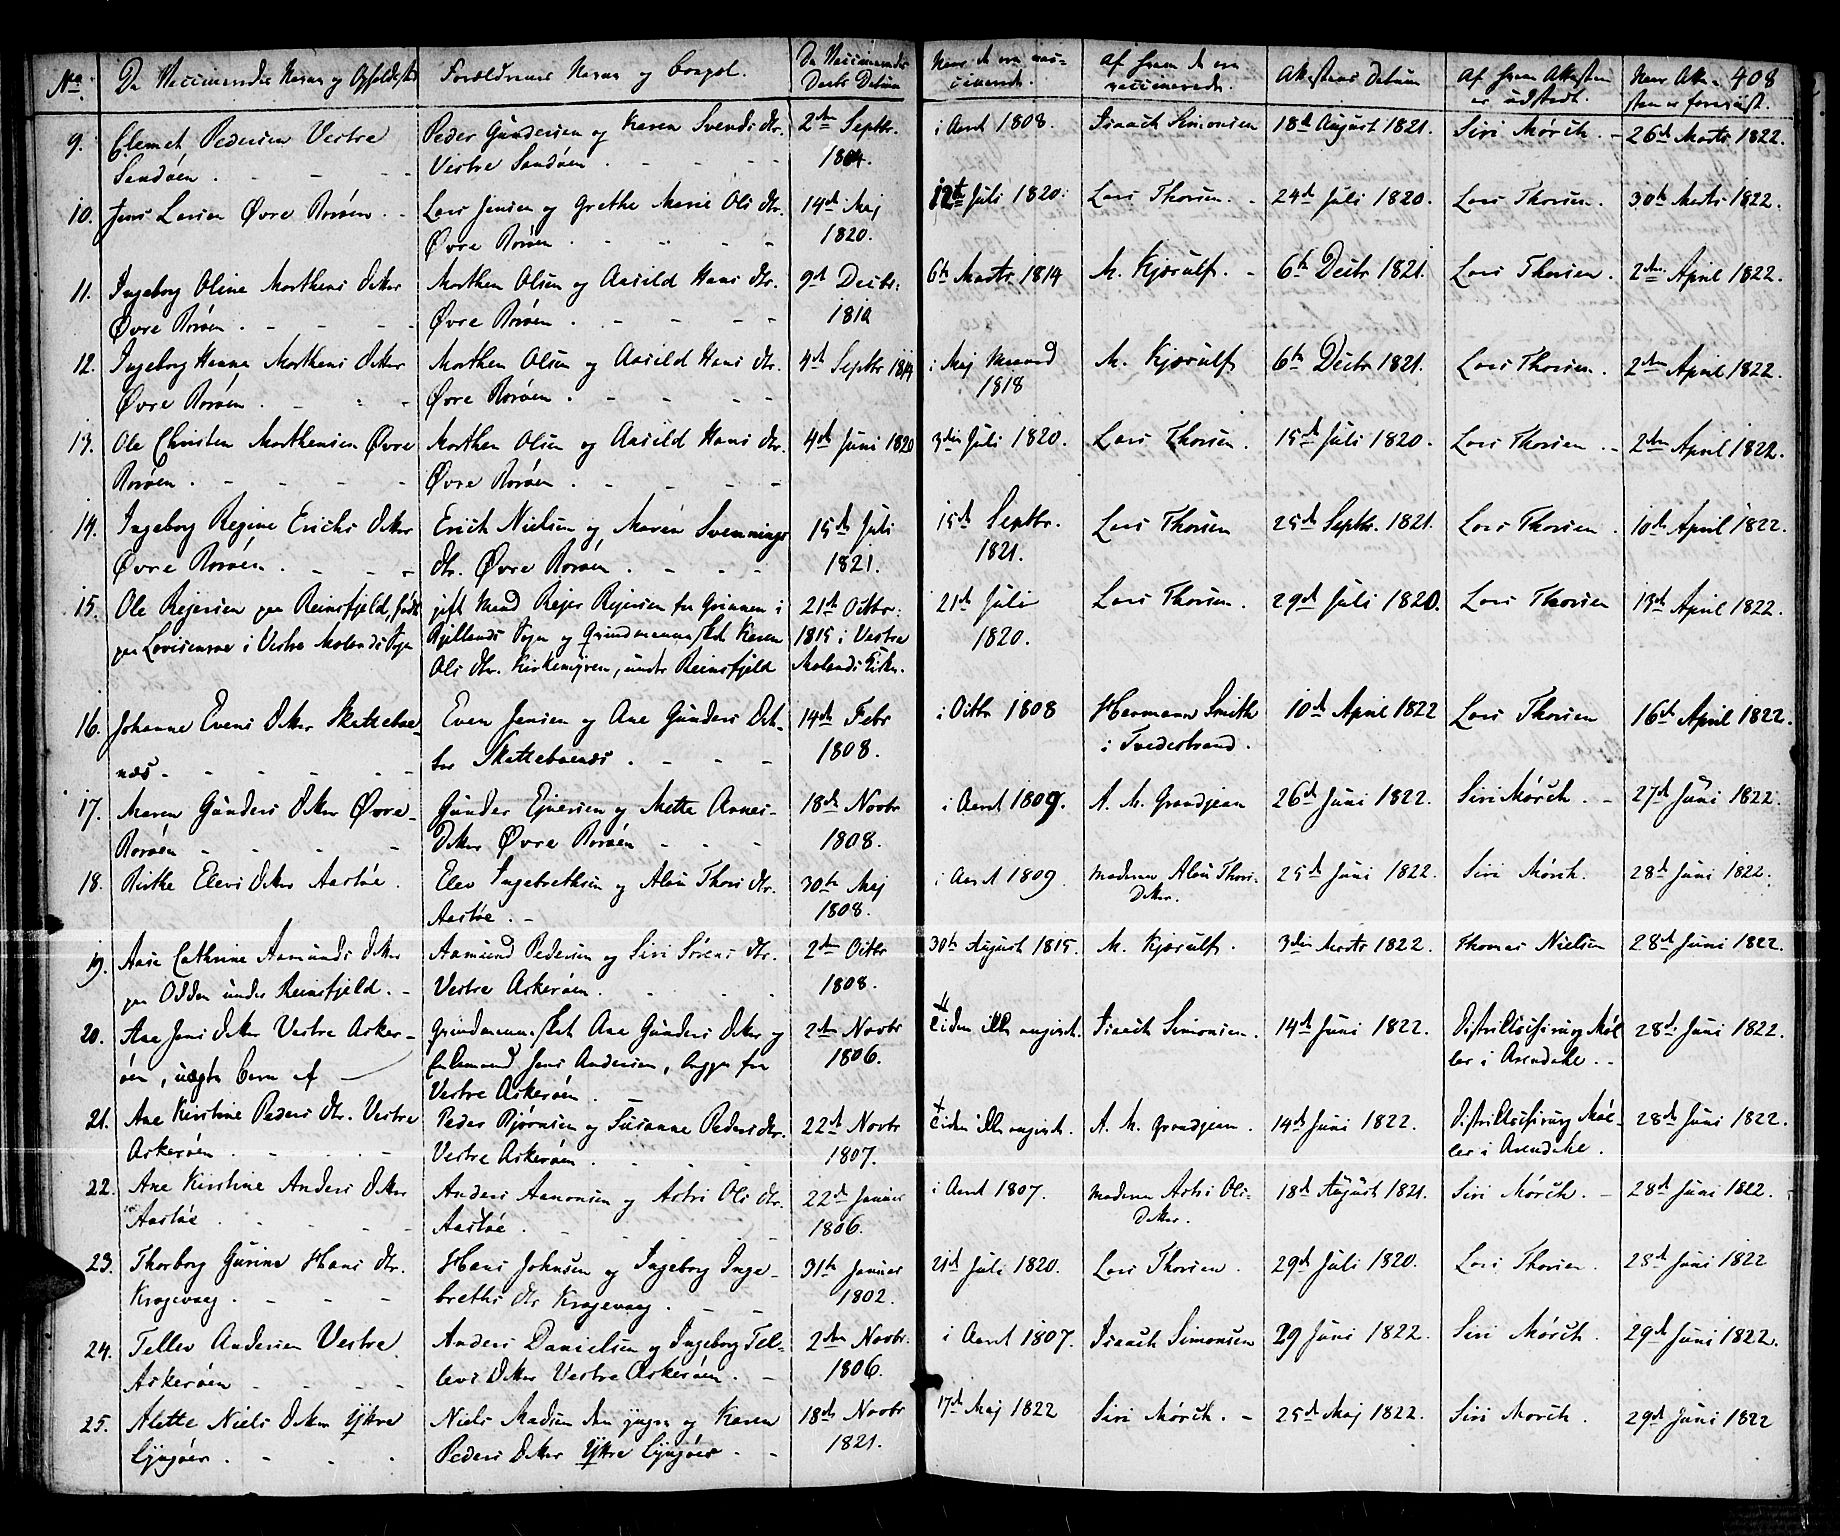 No. De Vaccineredes Navne og Opholdssted Forældrenes Navne og Bopæl. De Vaccineredes Naar de ere vac- Af hvem de ere Attestens Datum Af hvem Attesten Naar Atte- 408
Daabs Datum cinerede. vaccinerede. er udstedt. sten er foreviist.
9. Clemet Pedersen Vestre Peder Gundersen og Karen Svends dtr. 2den Septbr. i Aaret 1808. Isaach Simonsen 18de August 1821. Siri Mørch. - 26de Marts 1822.
Sandøen. - - - Vestre Sandøen - - - - 1804.
10. Jens Larsen Øvre Rorøen. - Lars Jensen og Grethe Marie Ols dtr. 14de Maj 12te Juli 1820. Lars Thorsen. - 24de Juli 1820. Lars Thorsen. 30te Marts 1822.
Øvre Rorøen. - - - - 1820.
11. Ingeborg Oline Morthens Dotter Morthen Olsen og Aasild Hans dtr. 9de Decbr. 6te Marts 1814 M. Kjærulf. - 6te Decbr 1821. Lars Thorsen. 2den April 1822.
Øvre Rorøen. - - - Øvre Rorøen. - - - -
12. Ingeborg Hanna Morthens Dotter Morthen Olsen og Aasild Hans dtr. 4de Septbr 1814 i Maj Maaned M. Kjærulf 6te Decbr 1821. Lars Thorsen. 2den April 1822.
Øvre Rorøen. - - - Øvre Rorøen. - - - - 1818
13. Ole Christen Morthensen Øvre Morthen Olsen og Aasild Hans dtr. 4de Juni 1820 3die Juli 1820. Lars Thorsen. 15de Juli 1820. Lars Thorsen. - 2den April 1822.
Rorøen. - - - - Øvre Rorøen. - - - -
14. Ingeborg Regine Erichs Dotter Erich Nielsen og Maren Svennings 15de Juli 15de Septbr. Lars Thorsen 25de Septbr. 1821. Lars Thorsen. 10de April 1822.
Øvre Rorøen. - - - dtr. Øvre Rorøen. - - - 1821. 1821.
15. Ole Rejersen paa Reinsfjeld, født gift Mand Rejer Rejersen fra Grinnen i 21de Octbr. 21de Juli Lars Thorsen. 29de Juli 1820. Lars Thorsen 13de April 1822.
paa Lovisenroe i Vestre Molands Sogn Kjellands Sogn og Qvindemennesket Karen 1815 i Vestre 1820.
Ols dtr. Kirkemyren, under Reinsfjeld Molands Kirke.
16. Johanne Evens Dotter Skottebue- Even Jensen og Ane Gunders Dot- 14de Febr i Octbr 1808 Hermann Smith 10de April 1822 Lars Thorsen 16de April 1822.
næs. - - - - ter Skottebuenæs. - - - 1808. i Tvedestrand.
17. Maren Gunders Dotter Øvre- Gunder Ejversen og Mette Annes- 18de Novbr i Aaret 1809. A. M. Grandjean 26de Juni 1822. Siri Mørch. - 27de Juni 1822.
Rorøen - - - - Dotter Øvre Rorøen - - - 1808.
18. Birthe Elevs Dotter Aastøe. Elev Ingebrethsen og Alou Thors dtr. 30te Maj i Aaret 1809. Moderen Alou Thors- 25de Juni 1822. Siri Mørch. 28de Juni 1822.
Aastøe. - 1808. Dotter.
19. Aase Cathrine Aamunds Dotter Aamund Pedersen og Siri Sørens dtr. 2den Octbr 30te August 1815. M. Kjærulf. 3die Marts 1822. Thomas Nielsen 28de Juni 1822.
paa Odden under Reinsfjeld. - Vestre Askerøen. - - - 1808.
20. Ane Jens Dotter Vestre Asker- Qvindemennesket Ane Gunders Dotter og 2den Novbr Tiden ikke angivet. Isaach Simonsen. 14de Juni 1822. Districtschirurg Møl- 28de Juni 1822.
øen, uægte barn af - Enkemand Jens Andersen, begge fra 1806. ler i Arendahl. -
Vestre Askerøen.
21. Ane Kirstine Peders dtr. Vestre Peder Bjørnsen og Susanne Peders dtr. 22de Novbr Tiden ikke angivet. A. M. Grandjean. 14de Juni 1822. Districtschirurg Møl- 28de Juni 1822.
Askerøen. - - - Vestre Askerøen. - - - 1807. ler i Arendahl.
22. Ane Kirstine Anders Dotter Anders Aanonsen og Astri Ols dtr. 22de Januar i Aaret 1807. Moderen Astri Ols- 18de August 1821. Siri Mørch. - 28de Juni 1822.
Aastøe. - - - Aastøe. - - - - 1806. Dotter.
23. Thorborg Gurine Hans dtr. Hans Johnsen og Ingeborg Inge- 31te Januar 21de Juli 1820. Lars Thorsen. 29de Juli 1820. Lars Thorsen. 28de Juni 1822
Krogevaag. - - - breths dtr Krogevaag. - - 1802.
24. Tellev Andersen Vestre Anders Danielsen og Ingeborg Tel- 2den Novbr. i Aaret 1807. Isaach Simonsen 29 Juni 1822. Siri Mørch. 29de Juni 1822.
Askerøen - - - - levs Dotter Vestre Askerøen. - 1806.
25. Alette Niels Dotter Yttre Niels Madsen den yngre og Karen 18de Novbr 17de Maj 1822 Siri Mørch. - 25de Maj 1822. Siri Mørch. 29de Juni 1822
Lyngøer. - - - Peders Dotter Yttre Lyngøer. - - 1821.